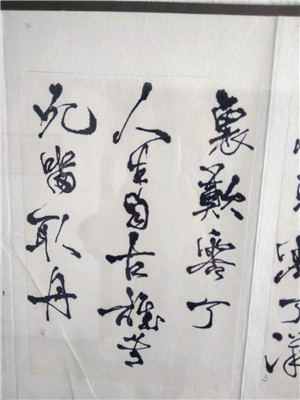 零丁洋
裏歎零丁
人生自古誰無
死留取丹